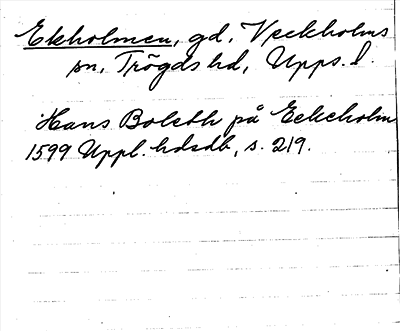 Ekholmen, gd, Veckholms
sn, Trögds hd, Upps. l.
Hans Boleth på Eekeholm
1599 Uppl. hdsdb, s. 219.